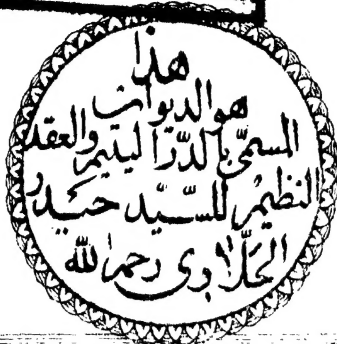 هذا
هو الديوان
المسمّى بالدّر اليتيم والعقد
النظيم للسّيّد حيدر
الحلاوى رحمه الله